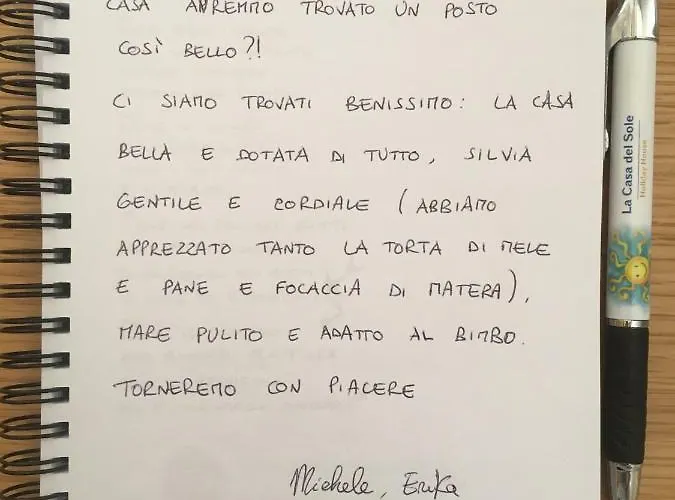 CASA AVREMMO TROVATO UN POSTO
COSÌ BELLO?!
CI SIAMO TROVATI BENISSIMO: LA CASA
BELLA E DOTATA DI TUTTO, SILVIA
GENTILE E CORDIALE (ABBIAMO
APPREZZATO TANTO LA TORTA DI MELE
E PANE E FOCACCIA DI MATERA),
MARE PULITO E ADATTO AL BIMBO.
TORNEREMO CON PIACERE
Michele, Erika
La Casa del Sole
Holiday House